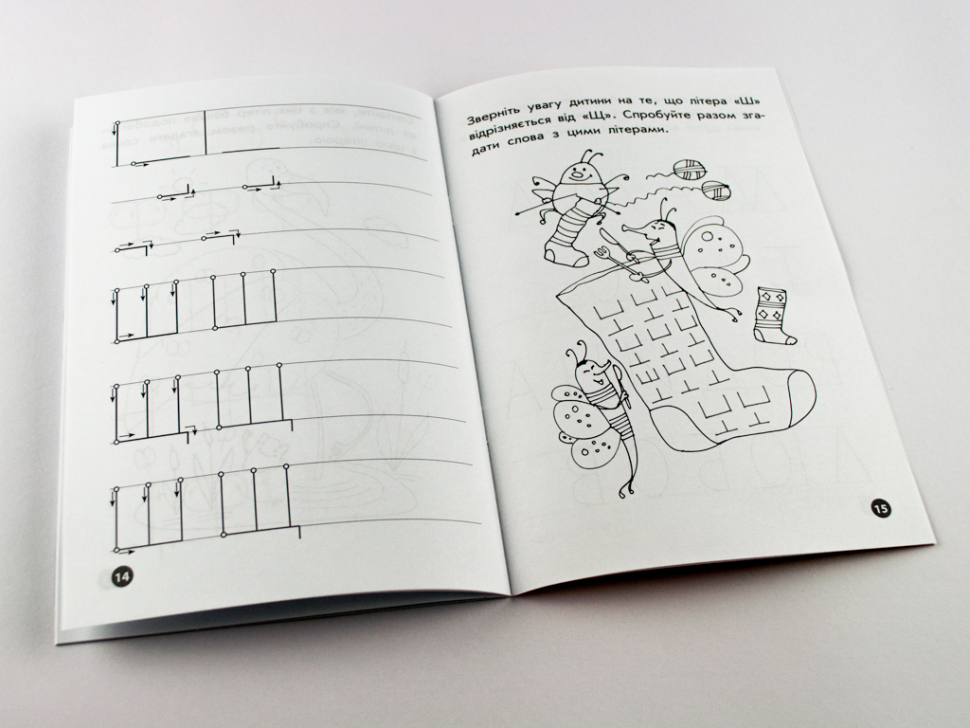 14
Зверніть увагу дитини на те, що літера «Ш»
відрізняється від «Щ». Спробуйте разом зга-
дати слова з цими літерами.
15